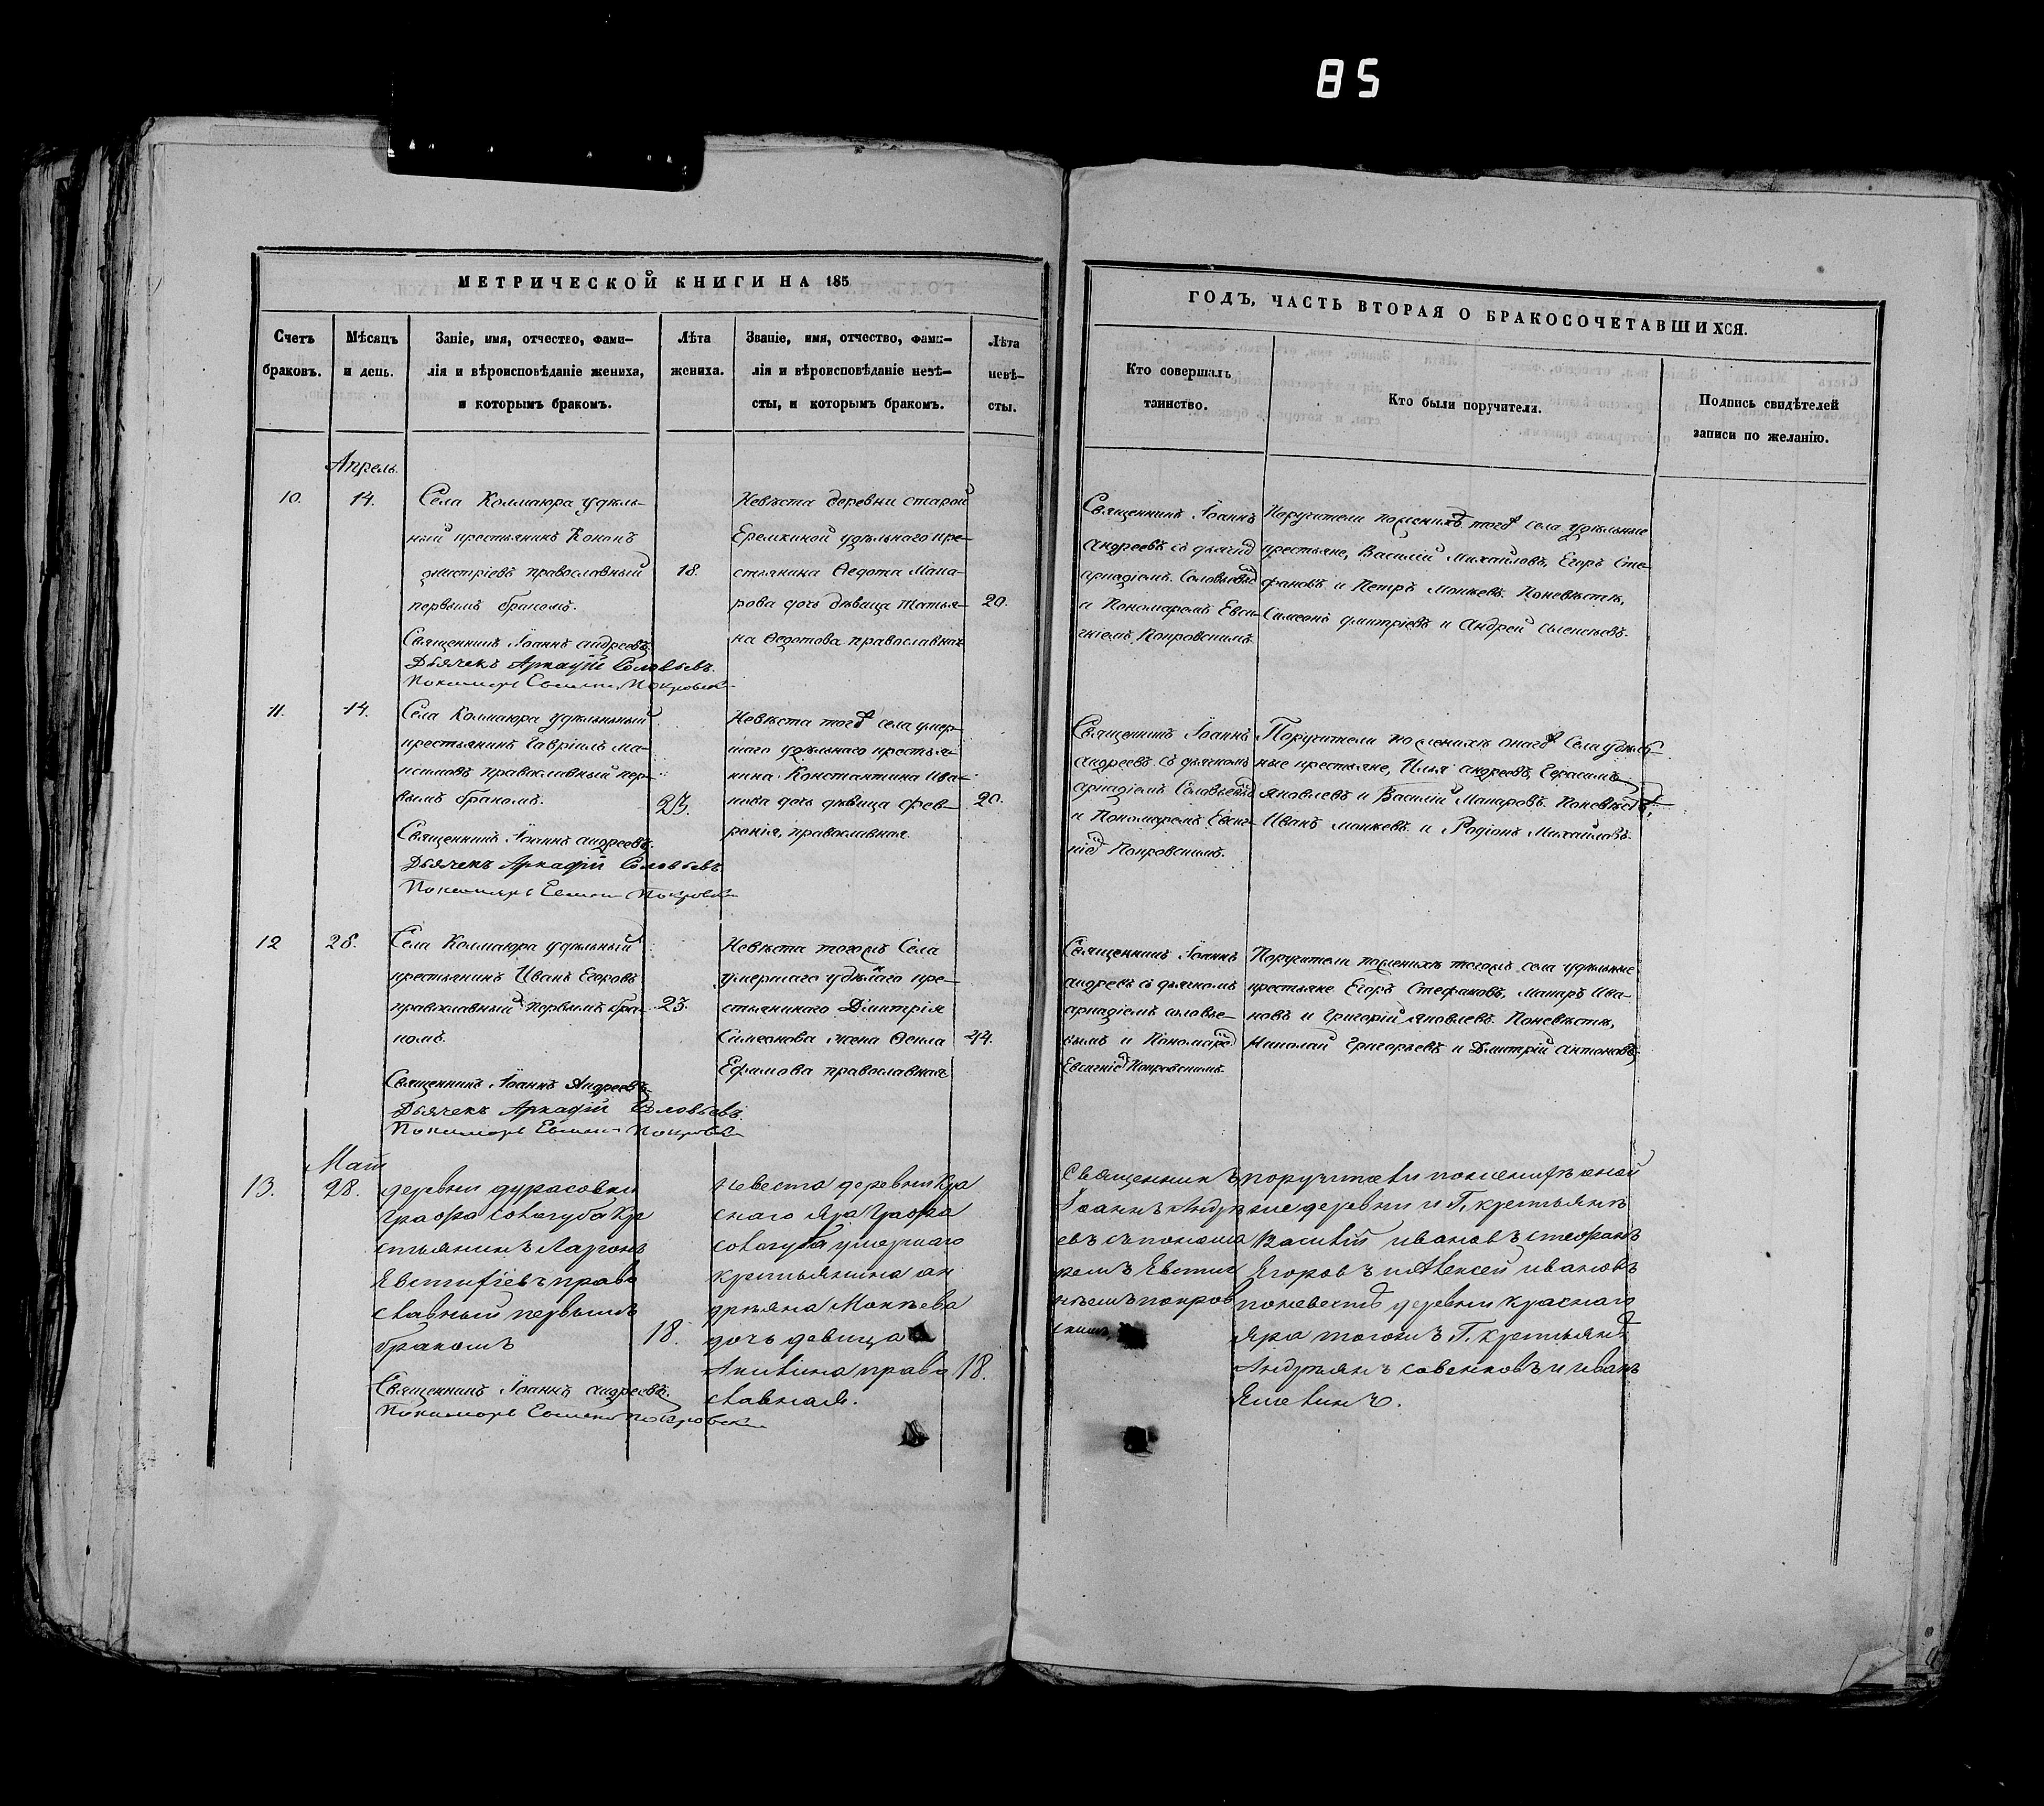 85
МЕТРИЧЕСКОЙ КНИГИ НА 185
Счетъ браковъ.
Мѣсяцъ и день.
Заніе, имя, отчество, фами-
лія и вѣроисповѣданіе жениха,
и которымъ бракомъ.
Лѣта жениха.
Званіе, имя, отчество, фами-
лія и вѣроисповѣданіе невѣ-
сты, и которымъ бракомъ.
Лѣта невѣ-
сты.
Апрель.
10.
14.
Села Колмаюра удѣль-
ный крестьянинъ Кононъ
Дмитріевъ православный
первымъ бракомъ.
18.
Священникъ Іоаннъ Андреевъ
Дьячекъ Аркадій Соловьевъ.
Невѣста деревни старой
Еремкиной удѣльнаго кре-
стьянина Ѳедота Мака-
рова дочь дѣвица Татья-
на Ѳедотова православная
20.
11.
14.
Села Колмаюра удѣльный
крестьянинъ Гавріилъ Ма-
ксимовъ православный пер-
вымъ бракомъ.
23.
Священникъ Іоаннъ Андреевъ.
Дьячекъ Аркадій Соловьевъ
Невѣста тогоже села умер-
шаго удѣльнаго крестья-
нина Константина Ива-
нова дочь дѣвица Фев-
ронія, православная.
20.
12
28.
Села Колмаюра удѣльный
крестьянинъ Иванъ Егоровъ
православный первымъ бра-
комъ.
23.
Священникъ Іоаннъ Андреевъ
Дьячекъ Аркадій Соловьевъ.
Невѣста тогожъ Села
умершаго удѣлнаго кре-
Димитрія
Симеонова жена Ѳекла
Ефимова православная
Май
13.
28.
деревни дурасовки
Графа Сологуба кр
стьянинъ Ларіонъ
Евстифіевъ право
славный первымъ
бракомъ
18.
Священникъ Іоаннъ Андреевъ.
Невеста деревни Кра
снаго Яра Графа
Сологуба умершаго
крестьянина ан
дреяна Мокѣева
дочь девица
Акилина право
славная.
18.
ГОДЪ, ЧАСТЬ ВТОРАЯ О БРАКОСОЧЕТАВШИХСЯ.
Кто совершалъ
таинство.
Кто были поручители.
Подпись свидѣтелей
записи по желанію.
Священникъ Іоаннъ
Андреевъ съ дьячком
Аркадіемъ Соловьевым
и Пономаремъ Евси-
гніемъ Покровскимъ.
Поручители по женихѣ тогоже села удѣльные
крестьяне, Василій Михайловъ, Егоръ Сте-
фановъ и Петръ Мокѣевъ. По невѣстѣ,
Симеонъ Дмитріевъ и Андрей
Священникъ Іоаннъ
Андреевъ съ дьячкомъ
Аркадіемъ Соловьевым
и Пономаремъ
Покровскимъ.
Поручители по женихѣ онагоже Села удѣль-
ные крестьяне, Илья Андреевъ, Герасимъ
Яковлевъ и Василій Макаровъ. По невѣстѣ,
Иванъ Мокѣевъ и Родіонъ Михайловъ.
Священникъ Іоаннъ
Андреевъ съ дьячкомъ
Аркадіемъ Соловье-
вымъ и Пономарем
Покровскимъ.
Поручители по женихѣ тогожъ села удѣльные
крестьяне Егоръ Стефановъ, Макаръ Ива-
новъ и Григорій Яковлевъ. По невѣстѣ,
Николай Григорьевъ и Дмитрій Антоновъ.
Священникъ
Іоаннъ Андре
евъ съ понома
ремъ
покров
скимъ,
поручители по женихѣ оной
же деревни и Г. крестьянъ
Василій ивановъ стефанъ
Егоровъ и Алексей ивановъ
по невестѣ деревни краснаго
яра тогожъ Г. крестьянѣ
Андреянъ савенковъ и иванъ